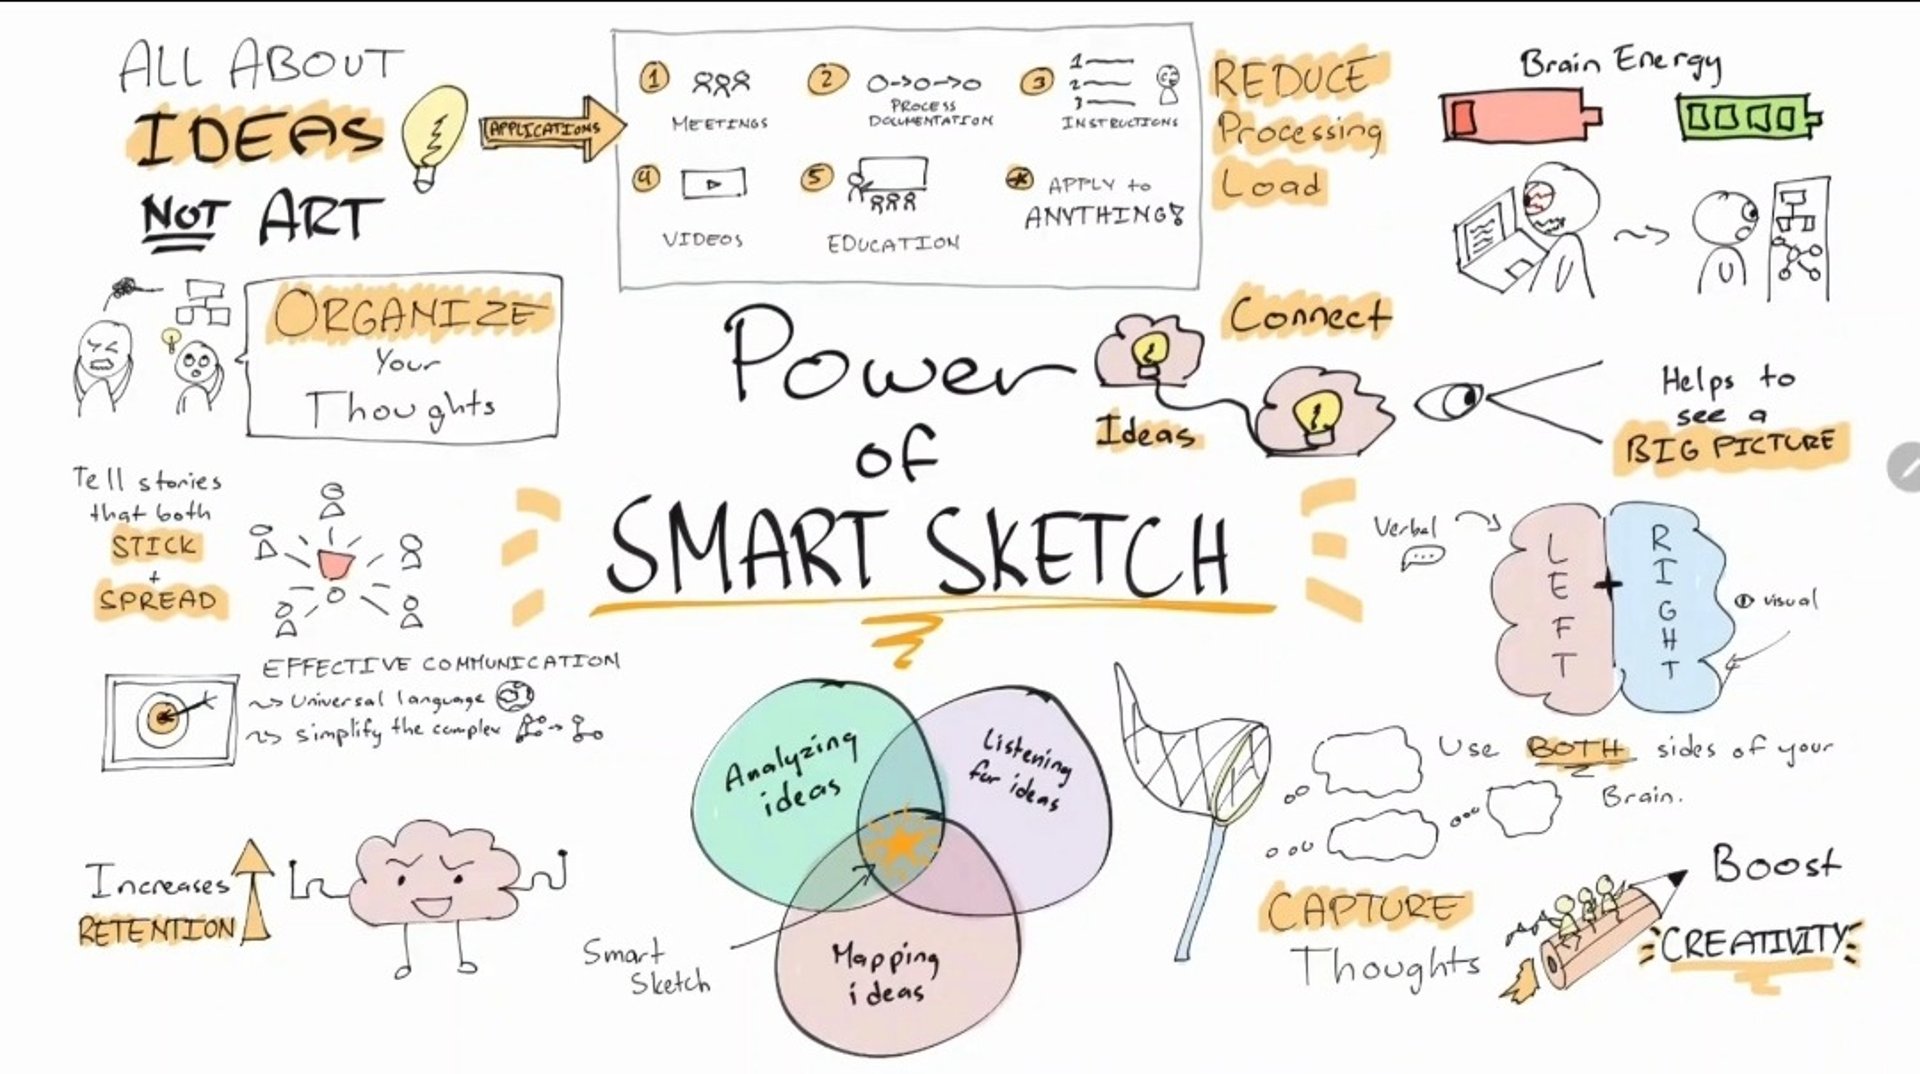 ALL ABOUT
IDEAS
NOT ART
APPLICATIONS
1
MEETINGS
2
PROCESS
DOCUMENTATION
3
1
2
3
INSTRUCTIONS
4
VIDEOS
5
EDUCATION
* APPLY to
ANYTHING!
REDUCE
Processing
Load
Brain Energy
ORGANIZE
Your
Thoughts
Power
of
SMART SKETCH
Connect
Ideas
Helps to
see a
BIG PICTURE
Tell stories
that both
STICK
+
SPREAD
Verbal
LEFT
+
RIGHT
visual
Use BOTH sides of your
Brain.
EFFECTIVE COMMUNICATION
Universal language
simplify the complex
Analyzing
ideas
Listening
for ideas
Mapping
ideas
Smart
Sketch
Increases
RETENTION
CAPTURE
Thoughts
Boost
CREATIVITY